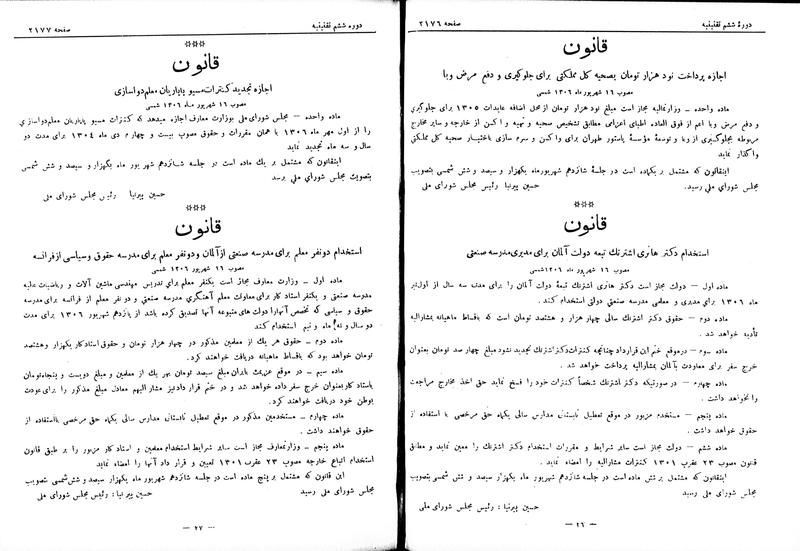 دورهٔ ششم تقنینیه
صفحه ۲۱۷۶
قانون
اجازه پرداخت نود هزار تومان بصحیه کل مملکتی برای جلوگیری و دفع مرض وبا
مصوب ۱۶ شهریور ماه ۱۳۰۶ شمسی
ماده واحده ــ وزارتمالیه مجاز است مبلغ نود هزار تومان از محل اضافه عایدات ۱۳۰۵ برای جلوگیری
و دفع مرض وبا اعم از فوق العاده اطبای اعزامی مطابق تشخیص صحیه و تهیه واکسن از خارجه و سایر مخارج
مربوطه بجلوگیری از وبا و توسعهٔ مؤسسهٔ پاستور طهران برای واکسن و سرم سازی باختیار صحیه کل مملکتی
واگذار نماید
اینقانون که مشتمل بر یکماده است در جلسهٔ شانزدهم شهریورماه یکهزار و سیصد و شش شمسی بتصویب
مجلس شورای ملی رسید.
رئیس مجلس شورای ملی حسین پیرنیا
***
قانون
استخدام دکتر هانری اشترنک تبعه دولت آلمان برای مدیری مدرسه صنعتی
مصوب ۱۶ شهریور ماه ۱۳۰۶ شمسی
ماده اول ــ دولت مجاز است دکتر هانری اشترنک تبعهٔ دولت آلمان را برای مدت سه سال از اول تیر
ماه ۱۳۰۶ برای مدیری و معلمی مدرسه صنعتی دولتی استخدام کند .
ماده دوم ــ حقوق دکتر اشترنک سالی چهار هزار و هشتصد تومان است که باقساط ماهیانه بمشارالیه
تأدیه خواهد شد .
ماده سوم ــ در موقع ختم این قرارداد چنانچه کنترات دکتر اشترنک تجدید نشود مبلغ چهار صد تومان بعنوان
خرج سفر برای معاودت بآلمان بمشارالیه پرداخت خواهد شد .
ماده چهارم ــ در صورتیکه دکتر اشترنک شخصاً کنترات خود را فسخ نماید حق اخذ مخارج مراجعت
را نخواهد داشت .
ماده پنجم ــ مستخدم مزبور در موقع تعطیل تابستان مدارس سالی یکماه حق مرخصی با استفاده از
حقوق خواهد داشت .
ماده ششم ــ دولت مجاز است سایر شرایط و مقررات استخدام دکتر اشترنک را معین نماید و مطابق
قانون مصوب ۲۳ عقرب ۱۳۰۱ کنترات مشارالیه را امضاء نماید .
اینقانون که مشتمل بر شش ماده است در جلسه شانزدهم شهریور ماه یکهزار و سیصد و شش شمسی بتصویب
مجلس شورای ملی رسید
رئیس مجلس شورای ملی : حسین پیرنیا
ــ ۲۶ ــ
دوره ششم تقنینیه
صفحه ۲۱۷۷
***
قانون
اجازه تجدید کنترات مسیو پاپاریان معلم دواسازی
مصوب ۱۶ شهریور ماه ۱۳۰۶ شمسی
ماده واحده ــ مجلس شورای ملی بوزارت معارف اجازه میدهد که کنترات مسیو پاپاریان معلم دواسازی
را از اول مهر ماه ۱۳۰۶ با همان مقررات و حقوق مصوب بیست و چهارم دی ماه ۱۳۰۴ برای مدت دو
سال و سه ماه تجدید نماید
اینقانون که مشتمل بر یک ماده است در جلسه شانزدهم شهریور ماه یکهزار و سیصد و شش شمسی
بتصویب مجلس شورای ملی رسید
رئیس مجلس شورای ملی حسین پیرنیا
***
قانون
استخدام دو نفر معلم برای مدرسه صنعتی از آلمان و دو نفر معلم برای مدرسه حقوق و سیاسی از فرانسه
مصوب ۱۶ شهریور ۱۳۰۶ شمسی
ماده اول ــ وزارت معارف مجاز است یکنفر معلم برای تدریس مهندسی ماشین آلات و ریاضیات عالیه
مدرسه صنعتی و یکنفر استاد کار برای معاونت معلم آهنگری مدرسه صنعتی و دو نفر معلم از فرانسه برای مدرسه
حقوق و سیاسی که تخصص آنها را دولت های متبوعه آنها تصدیق کرده باشد از پانزدهم شهریور ۱۳۰۶ برای مدت
دو سال و نه ماه و نیم استخدام کند
ماده دوم ــ حقوق هر یک از معلمین مذکور در چهار هزار تومان و حقوق استادکار یکهزار وهشتصد
تومان خواهد بود که باقساط ماهیانه دریافت خواهند کرد.
ماده سیم ــ در موقع عزیمت بایران مبلغ سیصد تومان بهر یک از معلمین و مبلغ دویست و پنجاه تومان
باستاد کار بعنوان خرج سفر داده خواهد شد و در ختم قرارداد نیز مشارالیهم معادل مبلغ مذکور را برای عودت
بوطن خود دریافت خواهند کرد.
ماده چهارم ــ مستخدمین مذکور در موقع تعطیل تابستان مدارس سالی یکماه حق مرخصی با استفاده از
حقوق خواهند داشت .
ماده پنجم ــ وزارتمعارف مجاز است سایر شرایط استخدام معلمین و استاد کار مزبور را بر طبق قانون
استخدام اتباع خارجه مصوب ۲۳ عقرب ۱۳۰۱ تعیین و قرار داد آنها را امضاء نماید
این قانون که مشتمل بر پنج ماده است در جلسه شانزدهم شهریور ماه یکهزار سیصد و شش شمسی بتصویب
مجلس شورای ملی رسید
رئیس مجلس شورای ملی : حسین پیرنیا
ــ ۲۷ ــ